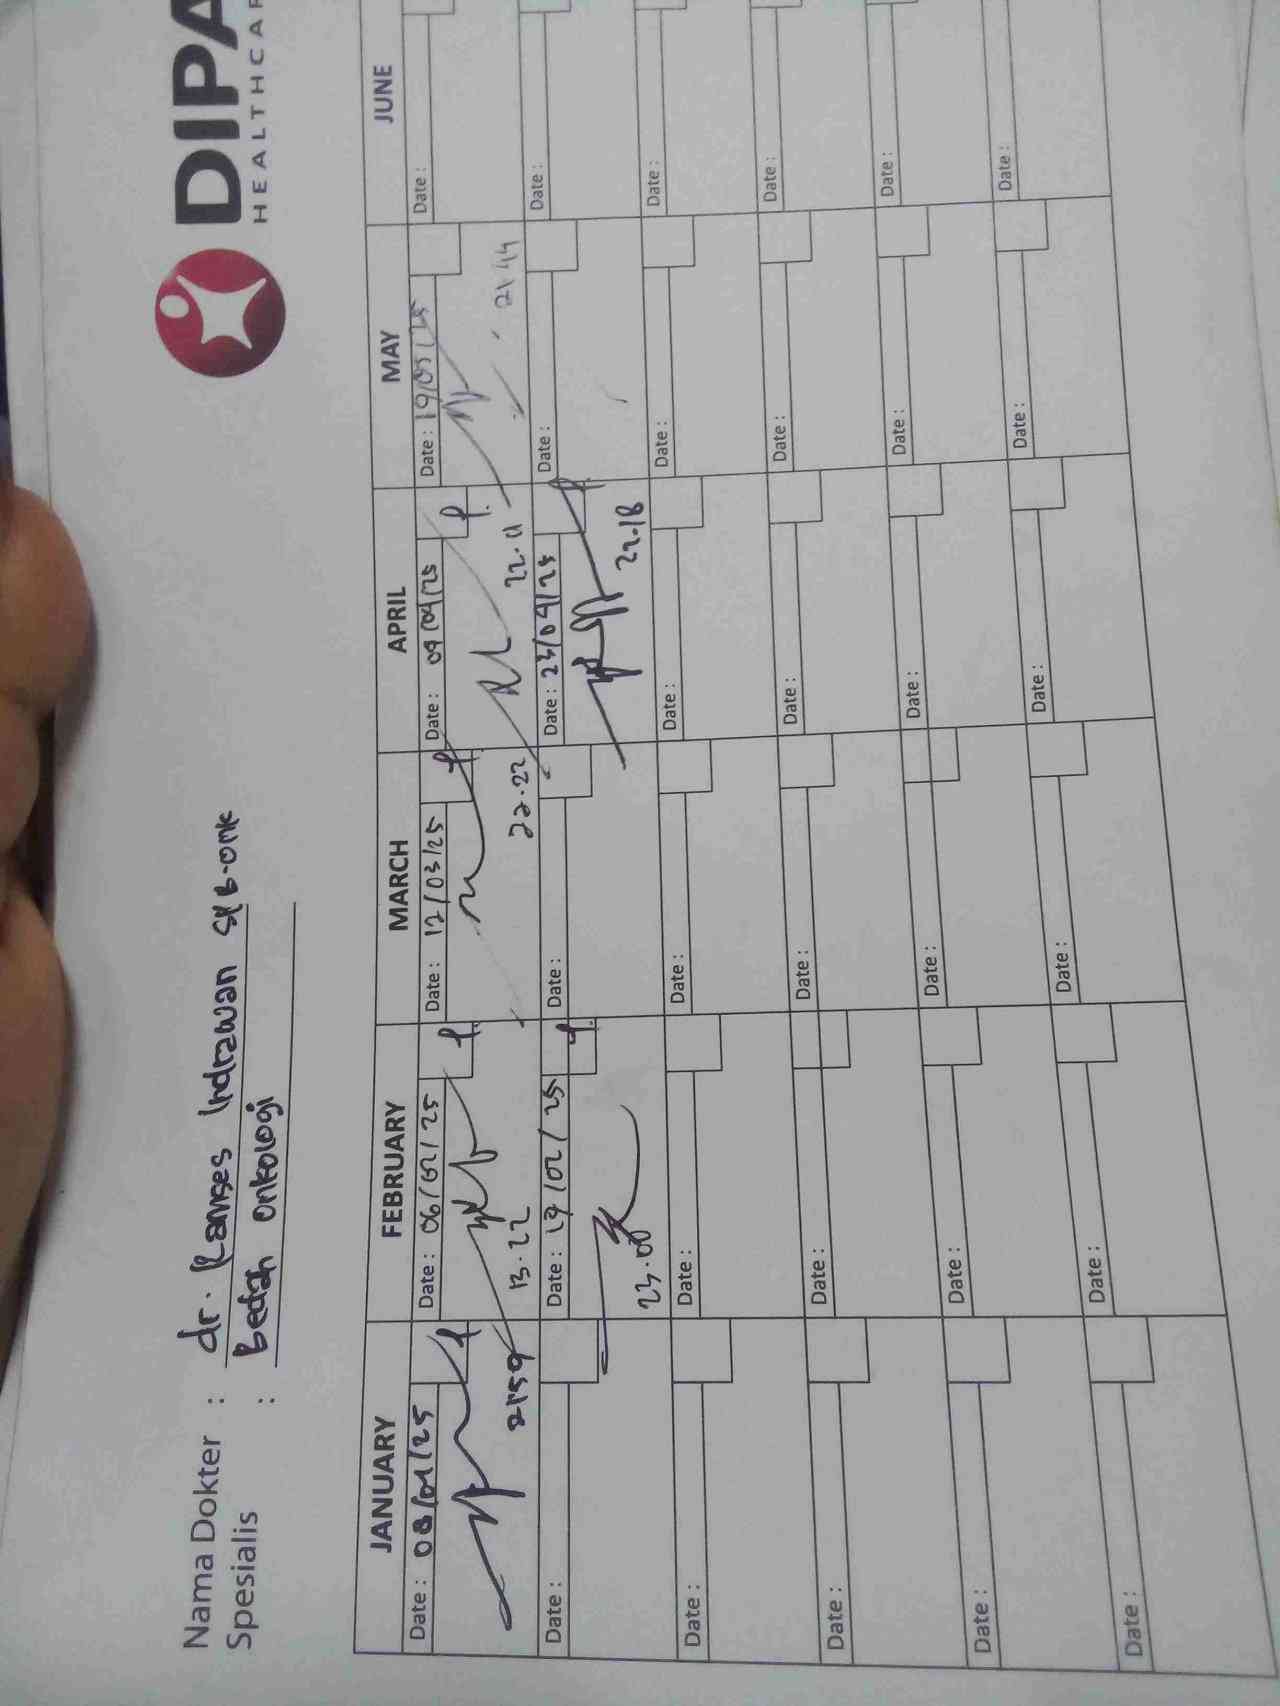 DIPA
HEALTHCAR
Nama Dokter : dr. Ramses Indrawan Sp B-onk
Spesialis : Bedah onkologi
JANUARY FEBRUARY MARCH APRIL MAY JUNE
Date : 08/01/25 Date : 06/02/25 Date : 12/03/25 Date : 09/04/25 Date : 19/05/25 Date :
21.59 13.22 22.22 22.11 21 44
Date : Date : 19/02/25 Date : Date : 23/04/25 Date : Date :
23.00 22.18
Date : Date : Date : Date : Date : Date :
Date : Date : Date : Date : Date : Date :
Date : Date : Date : Date : Date : Date :
Date : Date : Date : Date : Date : Date :